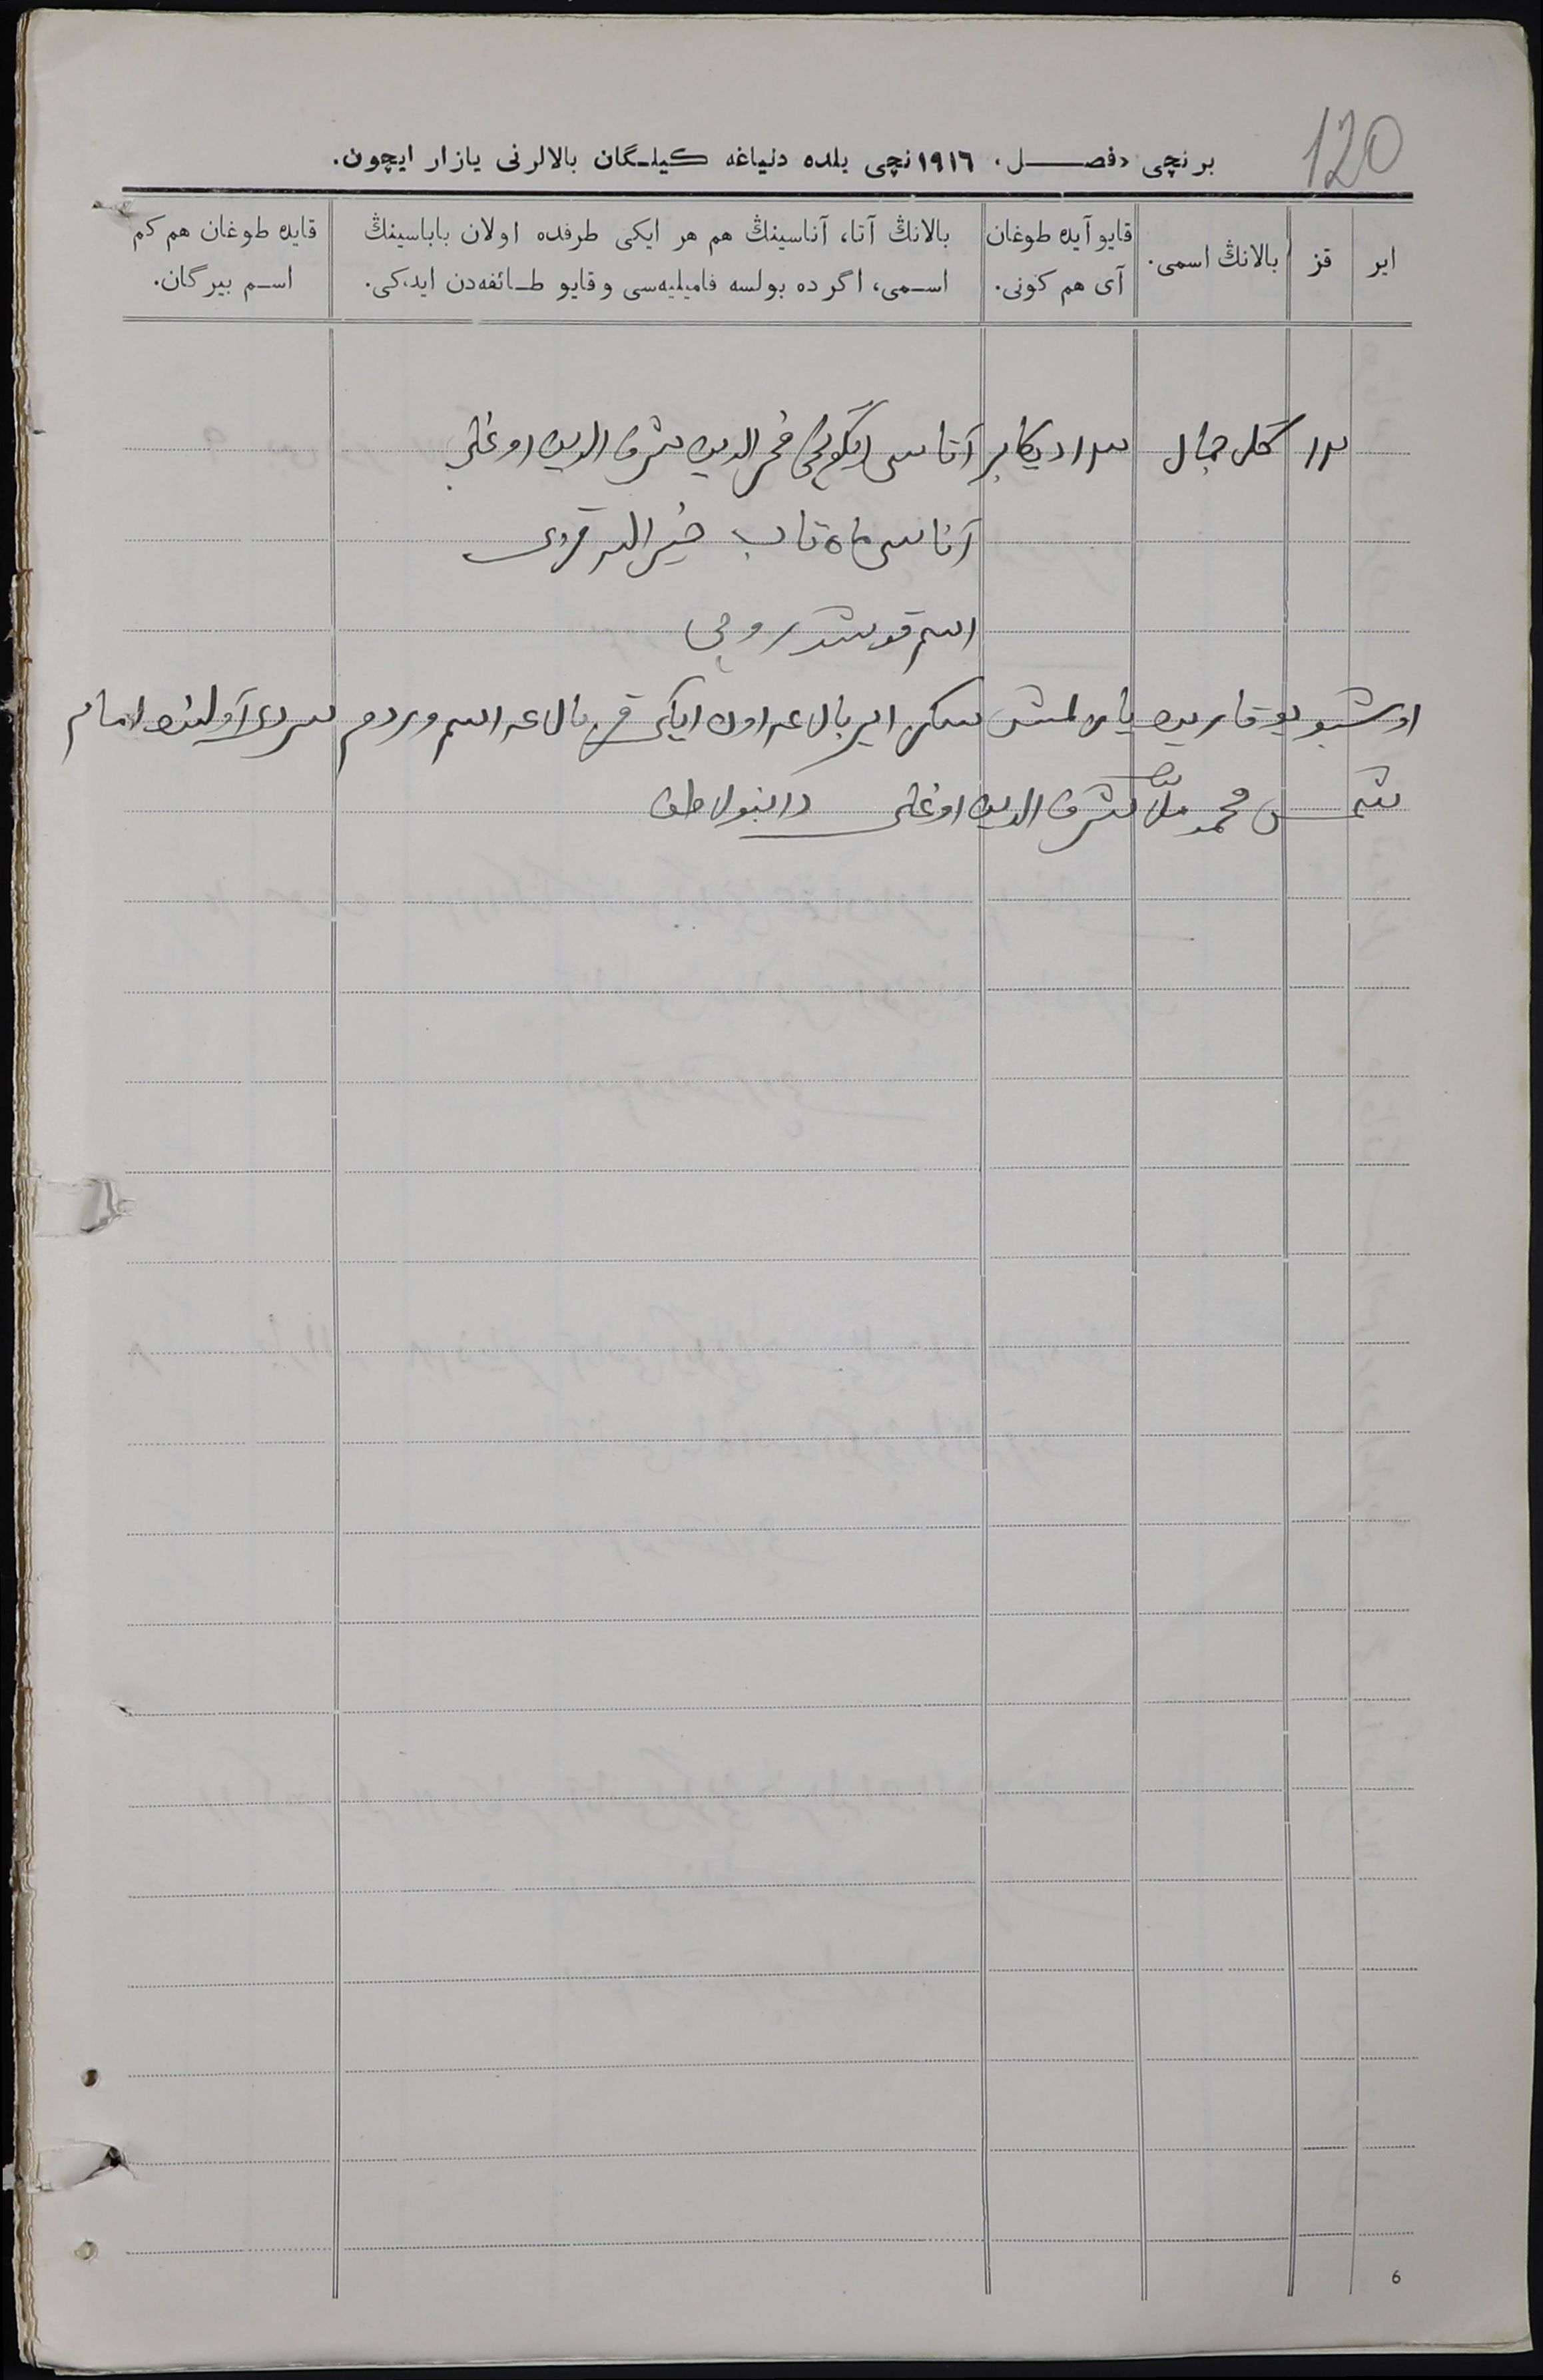 120
برنچی «فصل» ١٩١٦نچی یلده دنیاغه کیلگان بالالرنی یازار ایچون.
ایر
قز
بالانڭ اسمی.
قایو آیده طوغان
آی هم کونی.
بالانڭ آتا، آناسینڭ هم هر ایکی طرفده اولان باباسینڭ
اسمی، اگرده بولسه فامیلیه‌سی و قایو طائفه‌دن ایدیکی.
قایده طوغان هم کم
اسم بیرگان.
١٢ گل جمال ١٣ دیکابر آتاسی ایگونچی فخرالدین شرف الدین اوغلی
آناسی ماه تاب خیرالله قزی
اسم قوشدروچی
اوشبو یوقاریده یازلمش سکز ایر بالاغه اون ایکی قز بالاغه اسم وردم آولینڭ امام
شمس محمد ملا شرف الدین اوغلی
6